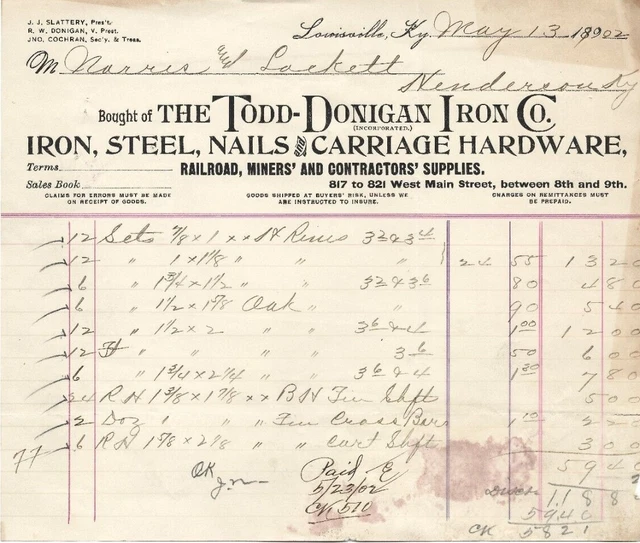 J. J. SLATTERY, Pres't.
R. W. DONIGAN, V. Prest.
JNO. COCHRAN, Sec'y. & Treas.
Louisville, Ky. May 13 1902
M Norris and Lockett
Henderson Ky
Bought of THE TODD-DONIGAN IRON CO.
(INCORPORATED.)
IRON, STEEL, NAILS and CARRIAGE HARDWARE,
Terms RAILROAD, MINERS' AND CONTRACTORS' SUPPLIES.
Sales Book 817 to 821 West Main Street, between 8th and 9th.
CLAIMS FOR ERRORS MUST BE MADE ON RECEIPT OF GOODS. GOODS SHIPPED AT BUYERS' RISK, UNLESS WE ARE INSTRUCTED TO INSURE. CHARGES ON REMITTANCES MUST BE PREPAID.
12 Sets 7/8 x 1 xx Rims
12 " 1 x 1 1/8 " " 24 55 13 20
6 " 1 3/4 x 1 1/2 " 80 4 80
6 " 1 1/2 x 1 5/8 Oak " " 90 5 40
12 " 1 1/2 x 2 " " 1 00 12 00
12 " " " " 50 6 00
6 " 1 3/4 x 2 1/4 " " 1 30 7 80
24 1 3/8 x 1 7/8 xx Shfts 5 00
2 Doz " " " Cross Bars 1 10 2 20
6 1 7/8 x 2 1/8 " " Cart Shfts 3 00
77 59 4
OK Paid E
5/23/02 1 1 8 8
CK 510 59 40
CK 58 21